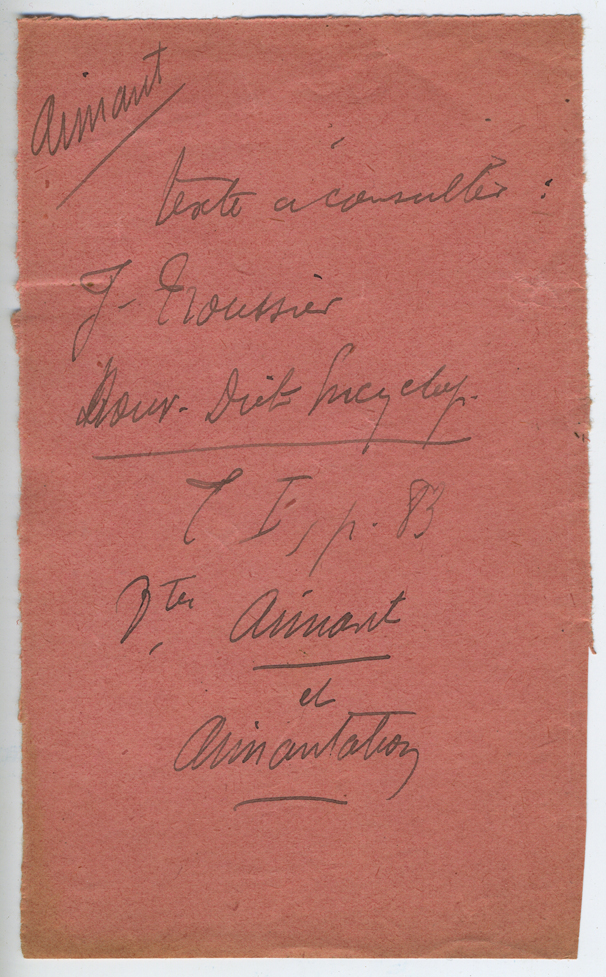 Aimant
texte à consulter :
J. Troussier
Nouv. Dict Encyclop.
T I, p. 83
Aimant
et
Aimantation